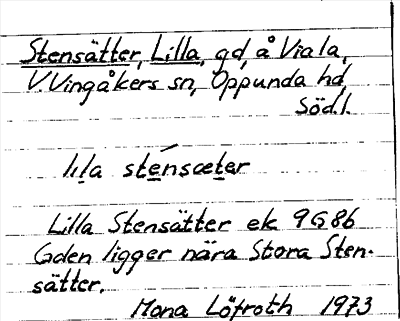 Stensätter, Lilla, gd, å Viala,
V. Vingåkers sn, Oppunda hd,
Södl.
lıla sténsæter
Lilla Stensätter ek 9G8b
Gden ligger nära Stora Sten-
sätter.
Mona Löfroth 1973